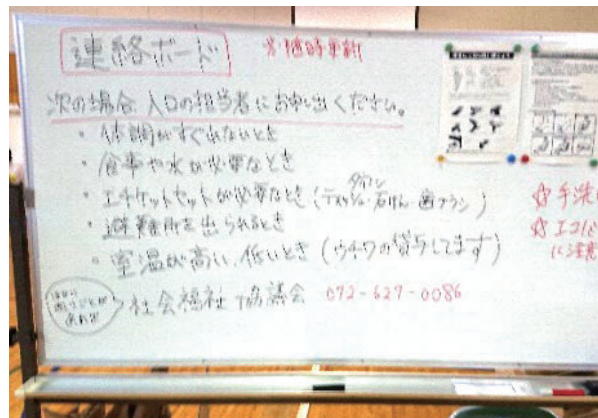 連絡ボード ※随時更新
次の場合入口の担当者にお申し出ください。
・体調がすぐれないとき
・食事や水が必要なとき
・エチケットセットが必要なとき(ティッシュ・石けん・歯ブラシ)
・避難所を出られるとき
・室温が高い、低いとき(ウチワの貸与してます)
社会福祉協議会 072-627-0086
☆手洗
☆エコ
に注意